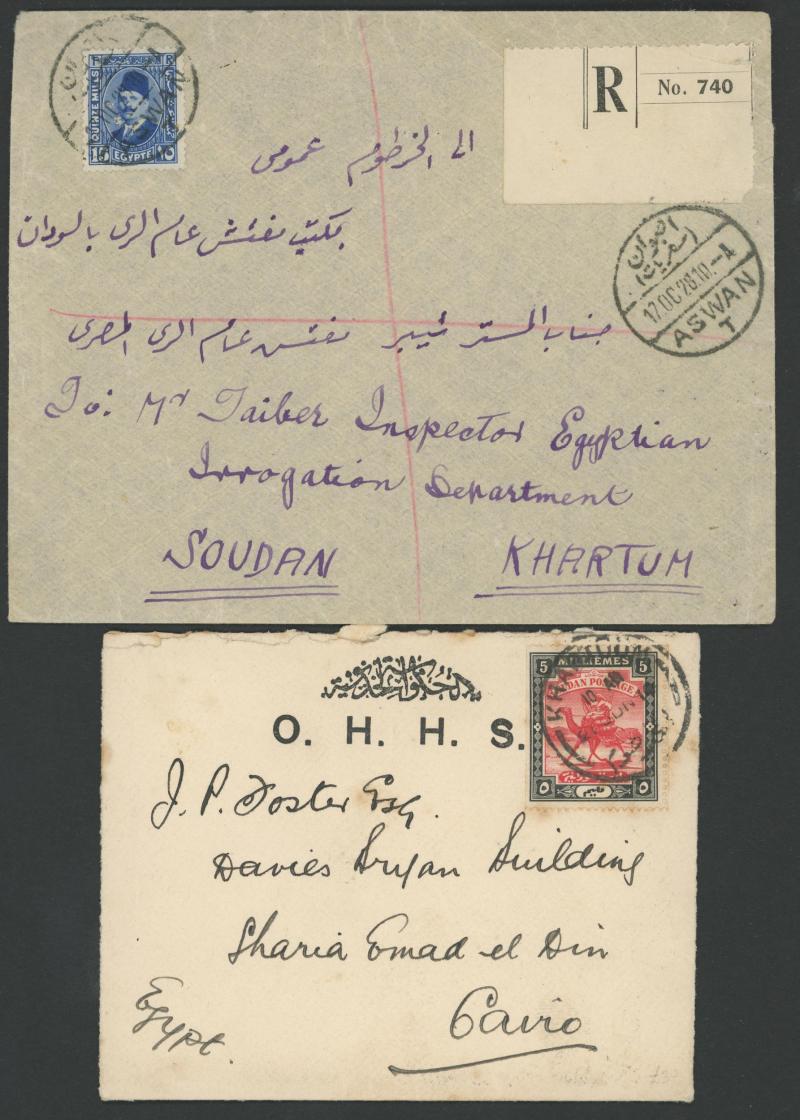 QUINZE MILLS
15 EGYPTE ١٥
R No. 740
الى الخرطوم عمومى
بمكتب مفتش عام الرى بالسودان
اصوان
(سفريات)
17 OC 28.10.-A
ASWAN
T
جناب المستر تيبر مفتش عام الرى المصرى
To: Mr Taiber Inspector Egyptian
Irrogation Department
SOUDAN KHARTUM
5 MILLIEMES 5
SUDAN POSTAGE
٥ مليم ٥
KHARTOUM
O. H. H. S.
J. P. Foster Esq.
Davies Bryan Building
Sharia Emad el Din
Cairo
Egypt.